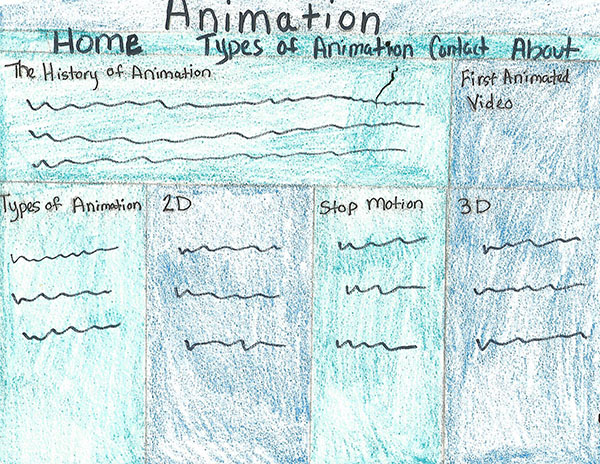 Animation
Home Types of Animation Contact About
The History of Animation
First Animated
Video
Types of Animation
2D
Stop Motion
3D